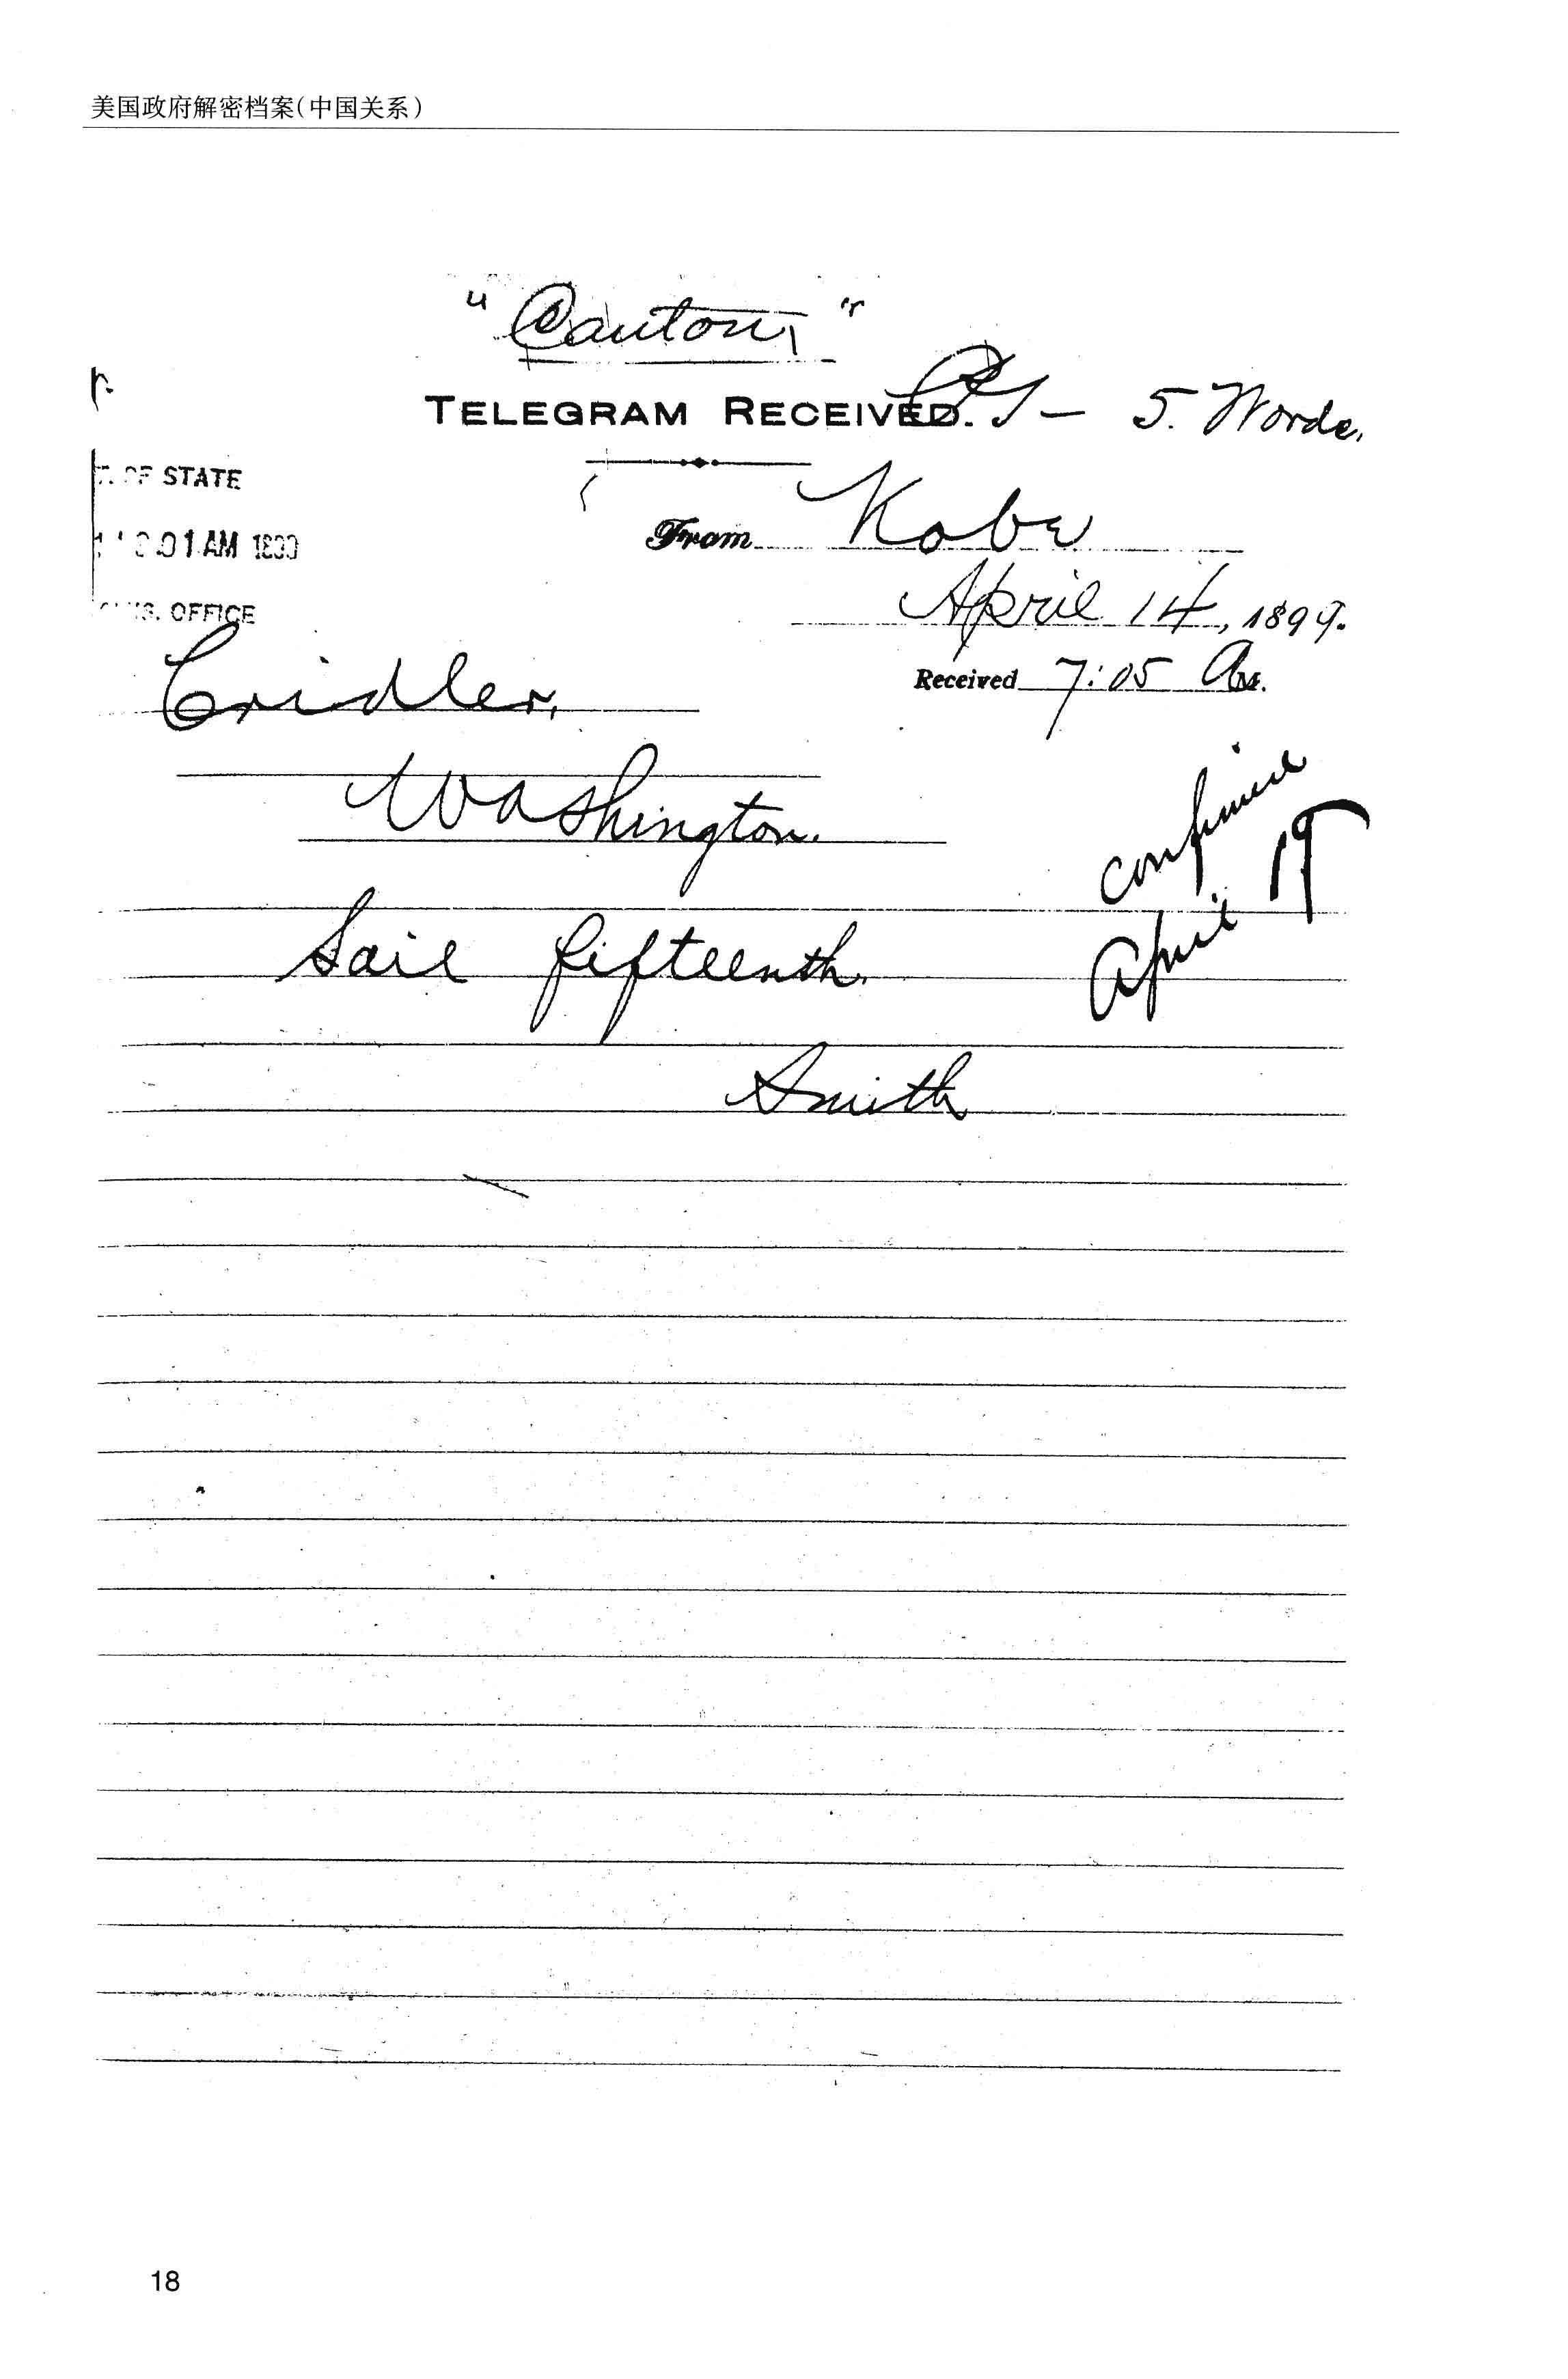 美国政府解密档案(中国关系)
"Canton"
TELEGRAM RECEIVED. — 5. Words.
OF STATE
01 AM
OFFICE
From Kobe
April 14, 1899.
Received 7:05 A M.
Cridler,
Washington.
Sail fifteenth.
Smith
April 19
18